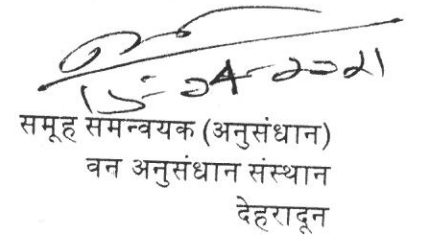 15-04-2021
समूह समन्वयक (अनुसंधान)
वन अनुसंधान संस्थान
देहरादून